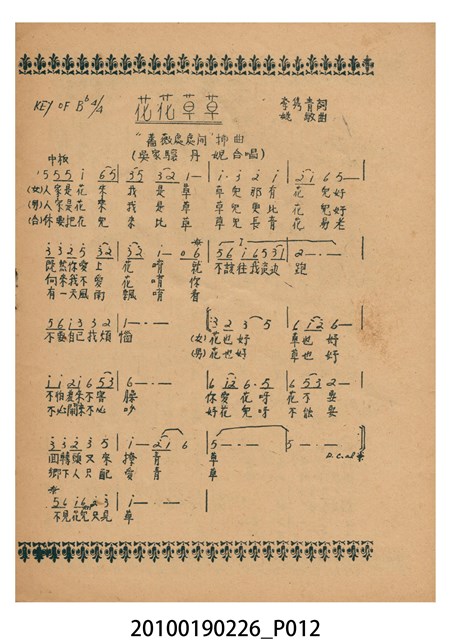 KEY OF B♭ 4/4
花花草草
李雋青詞
姚敏曲
"薔薇處處開"插曲
(吳家驤 丹妮合唱)
中板
5 5 5 i 6 5 | 3 5 3 2 1 — | i · 3 2 i | 2 i 6 5
(女)人家是花 來 我 是 草 草 兒 那 有 花 兒 好
(男)人家是花 來 我 是 草 草 兒 更 比 花 兒 好
(合)休要把花 兒 來 比 草 草 兒 長 青 花 易 老
既然你愛上 花 唷 就 不該往我 跑
何來我不愛 花 唷 你
有一天風雨 飄 唷 看
5 6 i 3 3 2 | 1 — · — | 3 2 3 5 | 6 i 2 6 —
不要自己找煩 惱 (女)花也好 草也好
(男)花也好 草也好
i i 2 i 6 5 3 | 6 — · — | 6 i 2 6 · 5 | 6 5 3 2 —
不怕妻來不害 臊 你愛花呀 花不要
不必鬧來不必 吵 好花兒呀 不能要
3 3 2 3 5 | i — 2 i 6 | 5 — · — | 5 — · —
回轉頭又來 撩 青 草
鄉下人只配 愛 青 草
D.C.al
不見花兒只見 草
20100190226_P012